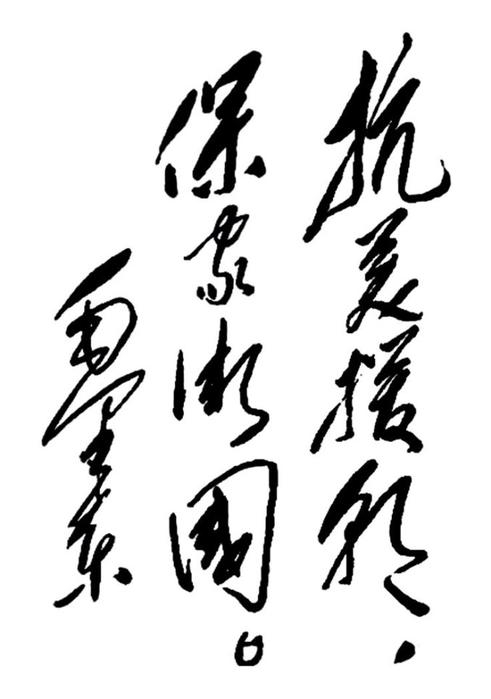 抗美援朝，
保家衛國。
毛泽东